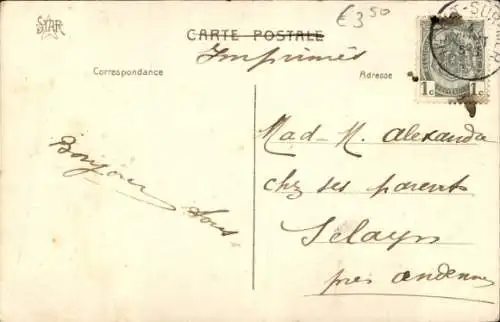 STAR
€ 3 50
CARTE POSTALE
Imprimés
Correspondance
Adresse
1c 1c
Bonjour
Mad - M. Alexanda
chez ses parents
Selayn
près andenne